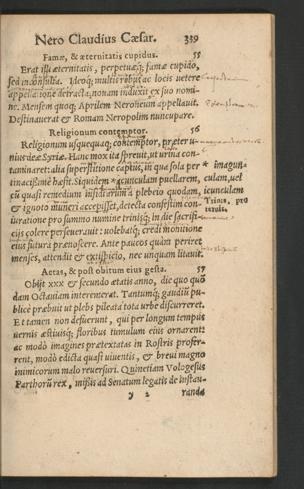 Nero Claudius Cæsar. 339
Famæ, & æternitatis cupidus. 55
Erat illi æternitatis, perpetuæq; famæ cupido,
sed inconsulta. Ideoq; multis rebus ac locis uetere
appellatione detracta, nouam induxit ex suo nomi-
ne. Mensem quoq; Aprilem Neroneum appellauit.
Destinauerat & Romam Neropolim nuncupare.
Religionum contemptor. 56
Religionum usquequaq; contemptor, præter u-
nius deæ Syriæ. Hanc mox ita spreuit, ut urina con-
taminaret: alia superstitione captus, in qua sola per * imagun-
tinacissimè hæsit. Siquidem * acunculam puellarem, culam, uel
cũ quasi remedium insidiarum à plebeio quodam, icunculam
& ignoto muneri accepisset, detecta confestim con- Trinis, pro
iuratione pro summo numine trinisq; in die sacrifi- ternis.
cijs colere perseuerauit: uolebatq; credi monitione
eius futura prænoscere. Ante paucos quàm periret
menses, attendit & extispicio, nec unquam litauit.
Aetas, & post obitum eius gesta. 57
Obijt xxx & secundo ætatis anno, die quo quõ
dam Octauiam interemerat. Tantumq; gaudiũ pu-
blicè præbuit ut plebs pileata tota urbe discurreret.
Et tamen non defuerunt, qui per longum tempus
uernis æstiuisq; floribus tumulum eius ornarent:
ac modò imagines prætextatas in Rostris profer-
rent, modò edicta quasi uiuentis, & breui magno
inimicorum malo reuersuri. Quinetiam Vologesus
Parthorũ rex, missis ad Senatum legatis de instau-
y 2 randa